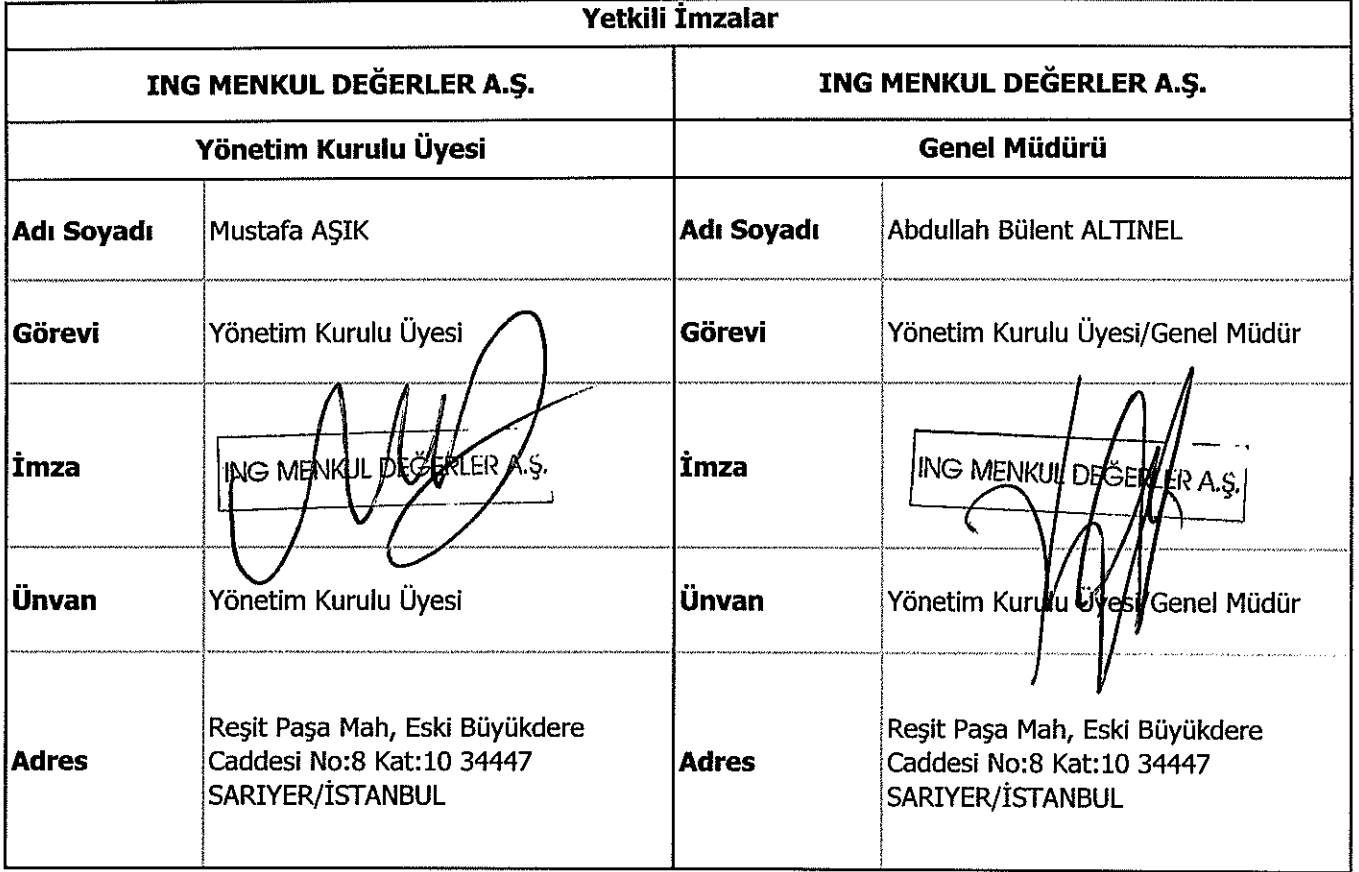 Yetkili İmzalar
ING MENKUL DEĞERLER A.Ş.
ING MENKUL DEĞERLER A.Ş.
Yönetim Kurulu Üyesi
Genel Müdürü
Adı Soyadı
Mustafa AŞIK
Adı Soyadı
Abdullah Bülent ALTINEL
Görevi
Yönetim Kurulu Üyesi
Görevi
Yönetim Kurulu Üyesi/Genel Müdür
İmza
ING MENKUL DEĞERLER A.Ş.
İmza
ING MENKUL DEĞERLER A.Ş.
Ünvan
Yönetim Kurulu Üyesi
Ünvan
Yönetim Kurulu Üyesi/Genel Müdür
Adres
Reşit Paşa Mah, Eski Büyükdere
Caddesi No:8 Kat:10 34447
SARIYER/İSTANBUL
Adres
Reşit Paşa Mah, Eski Büyükdere
Caddesi No:8 Kat:10 34447
SARIYER/İSTANBUL